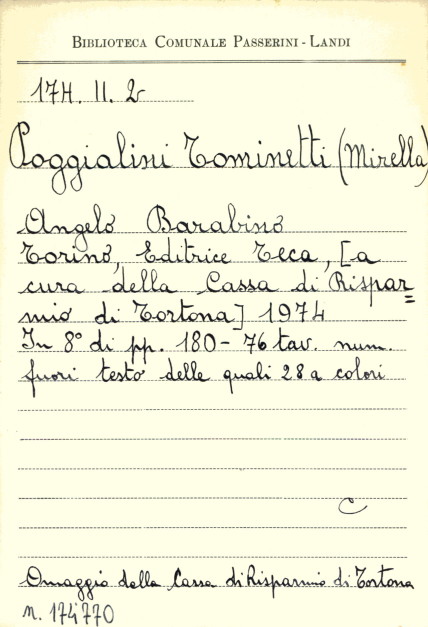 BIBLIOTECA COMUNALE PASSERINI - LANDI
174. II. 2
Poggialini Tominetti (Mirella)
Angelo Barabino
Torino, Editrice Teca, [a
cura della Cassa di Rispar=
mio di Tortona] 1974
In 8° di pp. 180 - 76 tav. num.
fuori testo delle quali 28 a colori
C
Omaggio della Cassa di Risparmio di Tortona
n. 174770